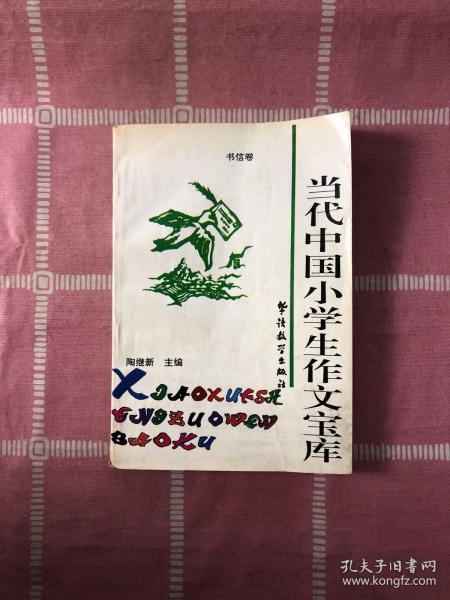 书信卷
当代中国小学生作文宝库
华语教学出版社
陶继新 主编
XIAOXUESH
ENGZUOWEN
BAOKU
孔夫子旧书网
www.kongfz.com